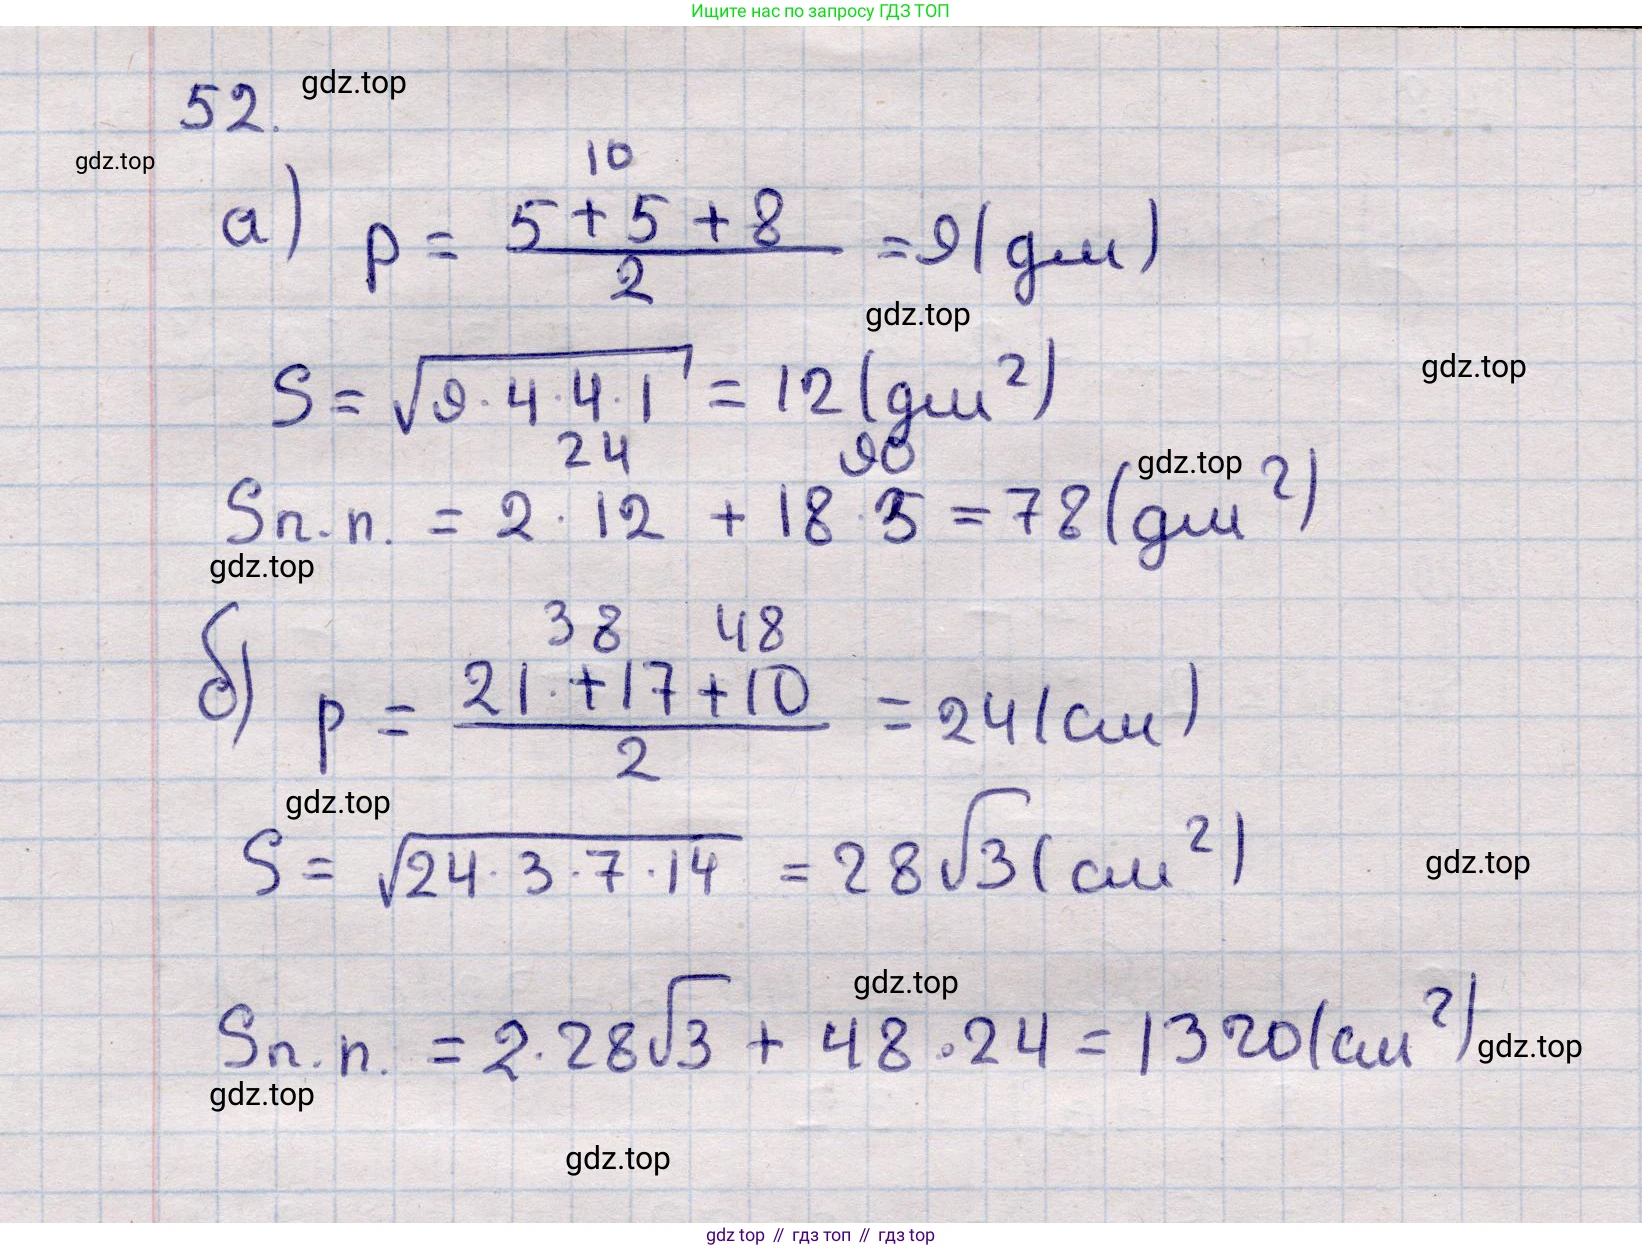 Ищите нас по запросу ГДЗ ТОП
52. gdz.top
gdz.top
10
а) p = (5 + 5 + 8)/2 = 9 (дм)
gdz.top
gdz.top
S = √(9 · 4 · 4 · 1) = 12 (дм²)
24 90 gdz.top
Sп.п. = 2 · 12 + 18 · 3 = 78 (дм²)
gdz.top
38 48
б) p = (21 + 17 + 10)/2 = 24 (см)
gdz.top
S = √(24 · 3 · 7 · 14) = 28√3 (см²)
gdz.top
gdz.top
Sп.п. = 2 · 28√3 + 48 · 24 = 1320 (см²)
gdz.top
gdz.top
gdz.top
gdz top // гдз топ // гдз top